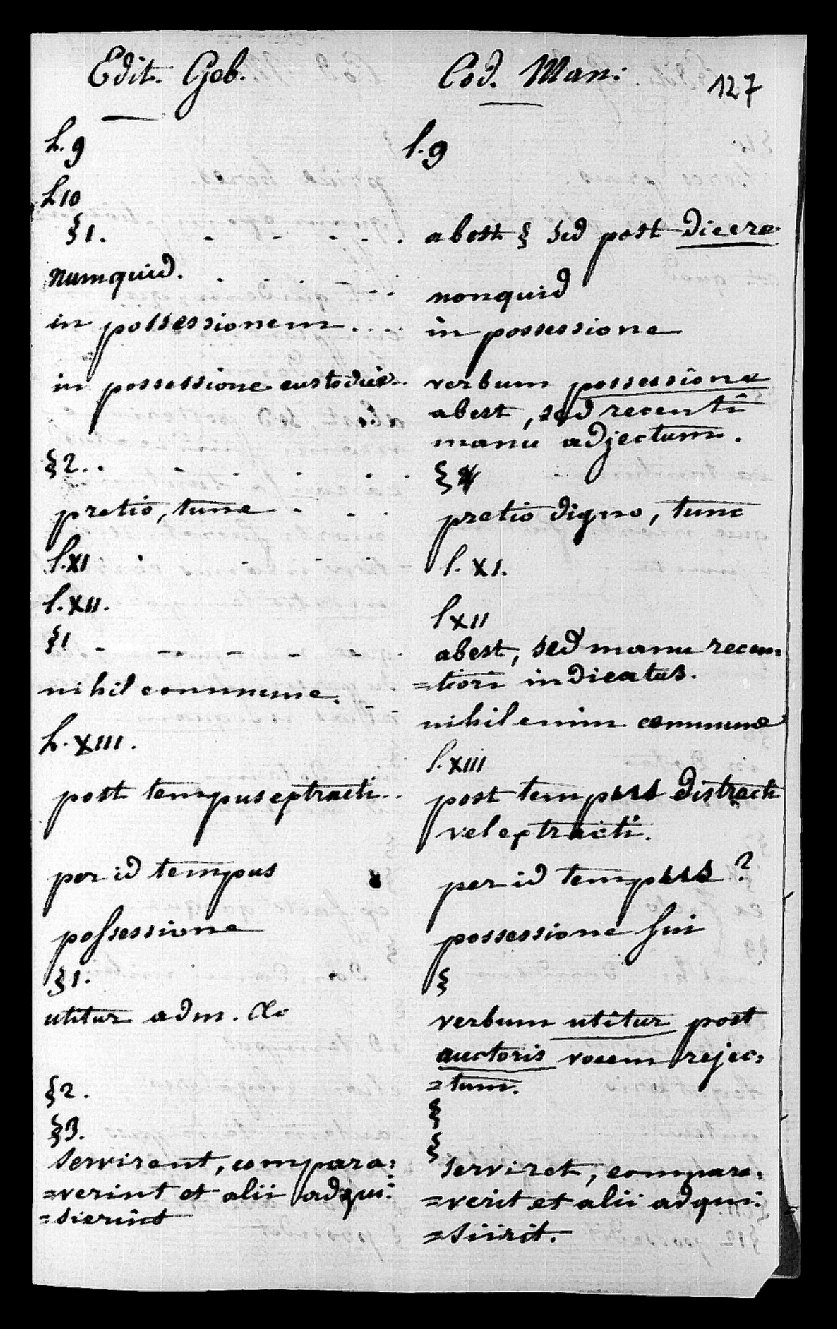 Edit. Geb.
Cod. Man:
127
L. 9
l. 9
L 10
§ 1. - - - - -
abest § sed post dicere.
numquid. - - - -
nonquid
in possessionem - - -
in possessione
in possessione custodiæ -
verbum possessione
abest, sed recenti
manu adjectum.
§ 2. - - - - -
§
pretio, tunc - - -
pretio digno, tunc
l. XI - - - - -
l. XI.
l. XII.
l XII
§ 1 - - - - -
abest, sed manu recen,
=tiori indicatus.
nihil commune.
nihil enim commune
L. XIII.
l. XIII
post tempus extracti - -
post tempus distracti
vel extracti.
per id tempus
per id tempus?
possessione
possessione sui
§ 1.
§
utitur adm. &c
verbum utitur post
auctoris vocem rejec:
=tum.
§ 2.
§
§ 3.
§
servirent, compara:
=verint et alii adqui:
=sierint
serviret, compara:
=verit et alii adqui:
=siirit.